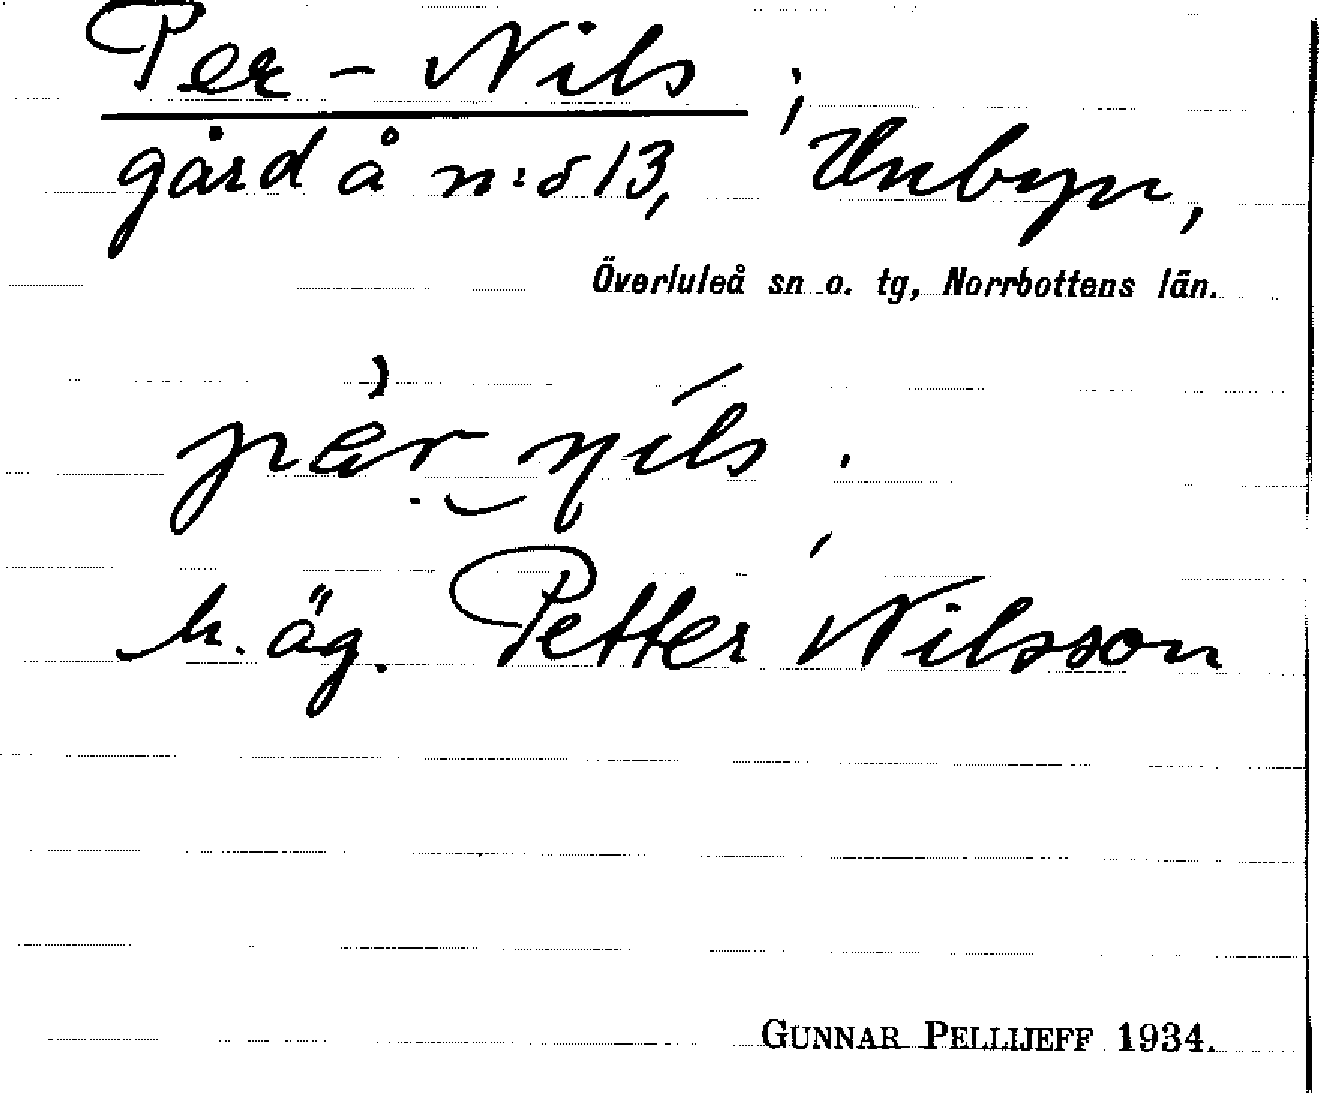 Per-Nils ;
gård å n:o 13, Unbyn,
Överluleå sn o. tg, Norrbottens län.
pär nils .
h. äg. Petter Nilsson
GUNNAR PELLIJEFF 1934.